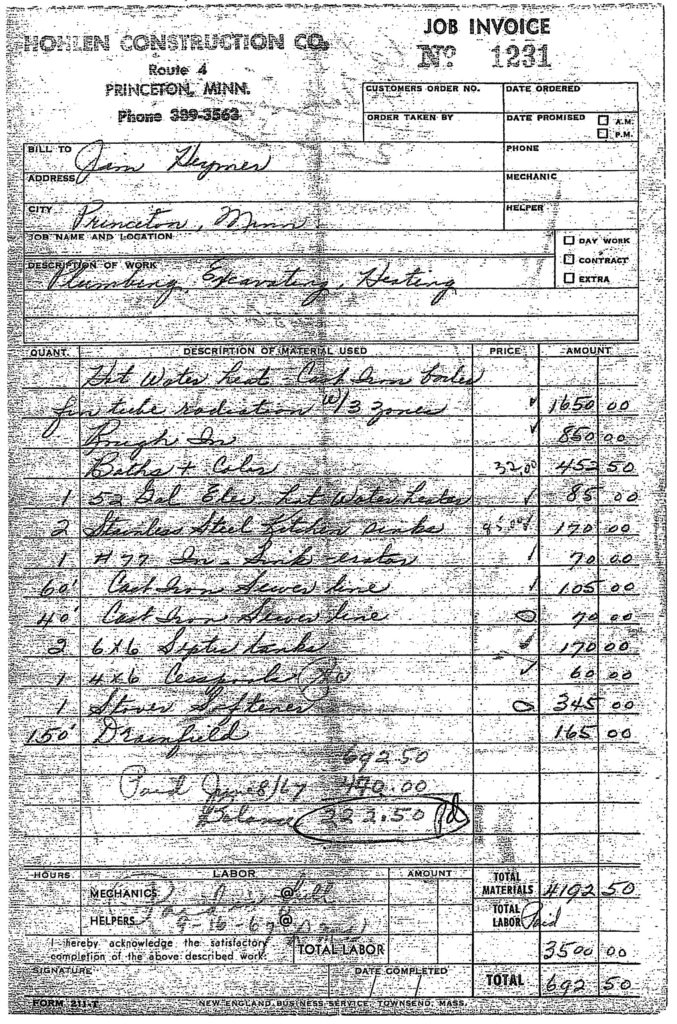 HOHLEN CONSTRUCTION CO.
Route 4
PRINCETON, MINN.
Phone 389-3563
JOB INVOICE
No 1231
CUSTOMERS ORDER NO.
DATE ORDERED
ORDER TAKEN BY
DATE PROMISED A.M.
P.M.
BILL TO Jam Heymer
PHONE
ADDRESS
MECHANIC
CITY Princeton, Minn.
HELPER
JOB NAME AND LOCATION
DAY WORK
CONTRACT
EXTRA
DESCRIPTION OF WORK
Plumbing, Excavating, Heating
QUANT. DESCRIPTION OF MATERIAL USED PRICE AMOUNT
Hot Water heat - Cast Iron boiler
fin tube radiation W/3 zones ✓ 1650 00
Rough In ✓ 850 00
Baths + Color 32.00 452 50
1 52 Gal Elec hot Water heater ✓ 85 00
2 Stainless Steel Kitchen sinks 85.00 170 00
1 #77 In-Sink-erator ✓ 70 00
60' Cast Iron Sewer line ✓ 105 00
40' Cast Iron Sewer line 0 70 00
2 6x6 Septic tanks ✓ 170 00
1 4x6 Cesspools ✓ 60 00
1 Stover Softener 0 345 00
150' Drainfield 165 00
692 50
Paid June 8/67 470.00
Balance 222.50 Pd
HOURS LABOR AMOUNT
MECHANICS @
HELPERS @
9-15-67
TOTAL MATERIALS 4192 50
TOTAL LABOR Paid
I hereby acknowledge the satisfactory completion of the above described work.
TOTAL LABOR
3500 00
SIGNATURE
DATE COMPLETED / /
TOTAL 692 50
FORM 211-T NEW ENGLAND BUSINESS SERVICE, TOWNSEND, MASS.